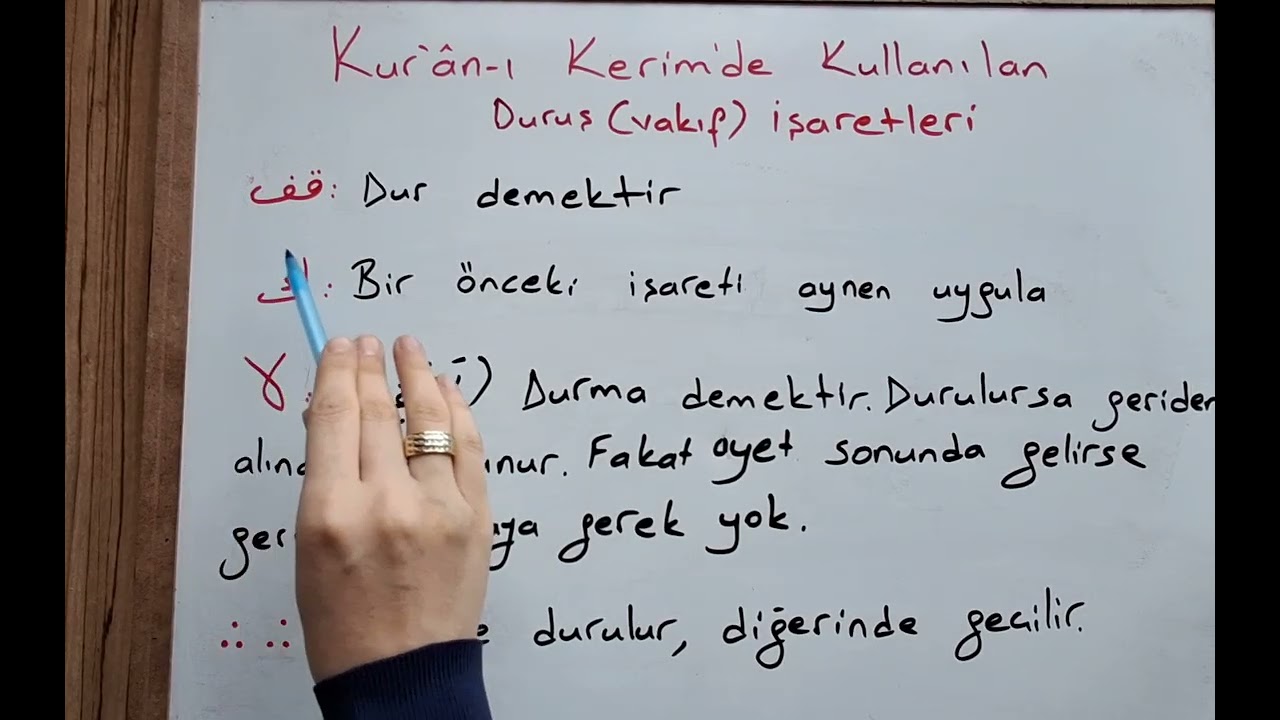 Kur'ân-ı Kerim'de Kullanılan
Duruş (vakıf) işaretleri
قف: Dur demektir
ك: Bir önceki işareti aynen uygula
لا Durma demektir. Durulursa geriden
Fakat ayet sonunda gelirse
gerek yok.
∴ ∴ durulur, diğerinde geçilir.